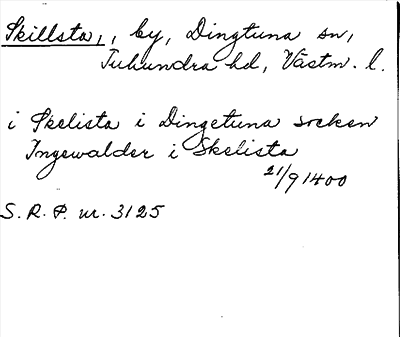 Skillsta,, by, Dingtuna sn,
Tuhundra hd, Västm. l.
i Skelista i Dingetuna socken
Ingewalder i Skelista
21/9 1400
S.R.P. nr. 3125